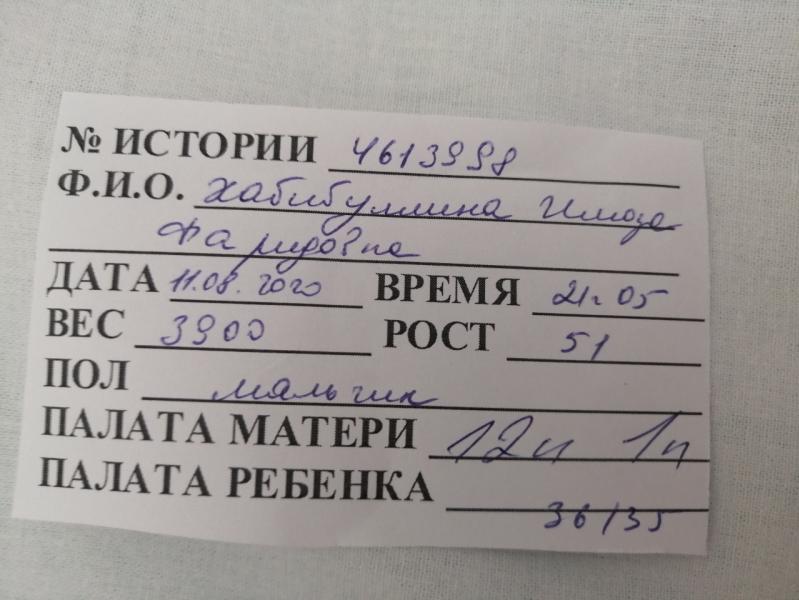 № ИСТОРИИ 4613998
Ф.И.О. Хабибуллина Илюза
Фаридовна
ДАТА 11.08.2020 ВРЕМЯ 21ч 05
ВЕС 3900 РОСТ 51
ПОЛ мальчик
ПАЛАТА МАТЕРИ 12п 1п
ПАЛАТА РЕБЕНКА 36/35